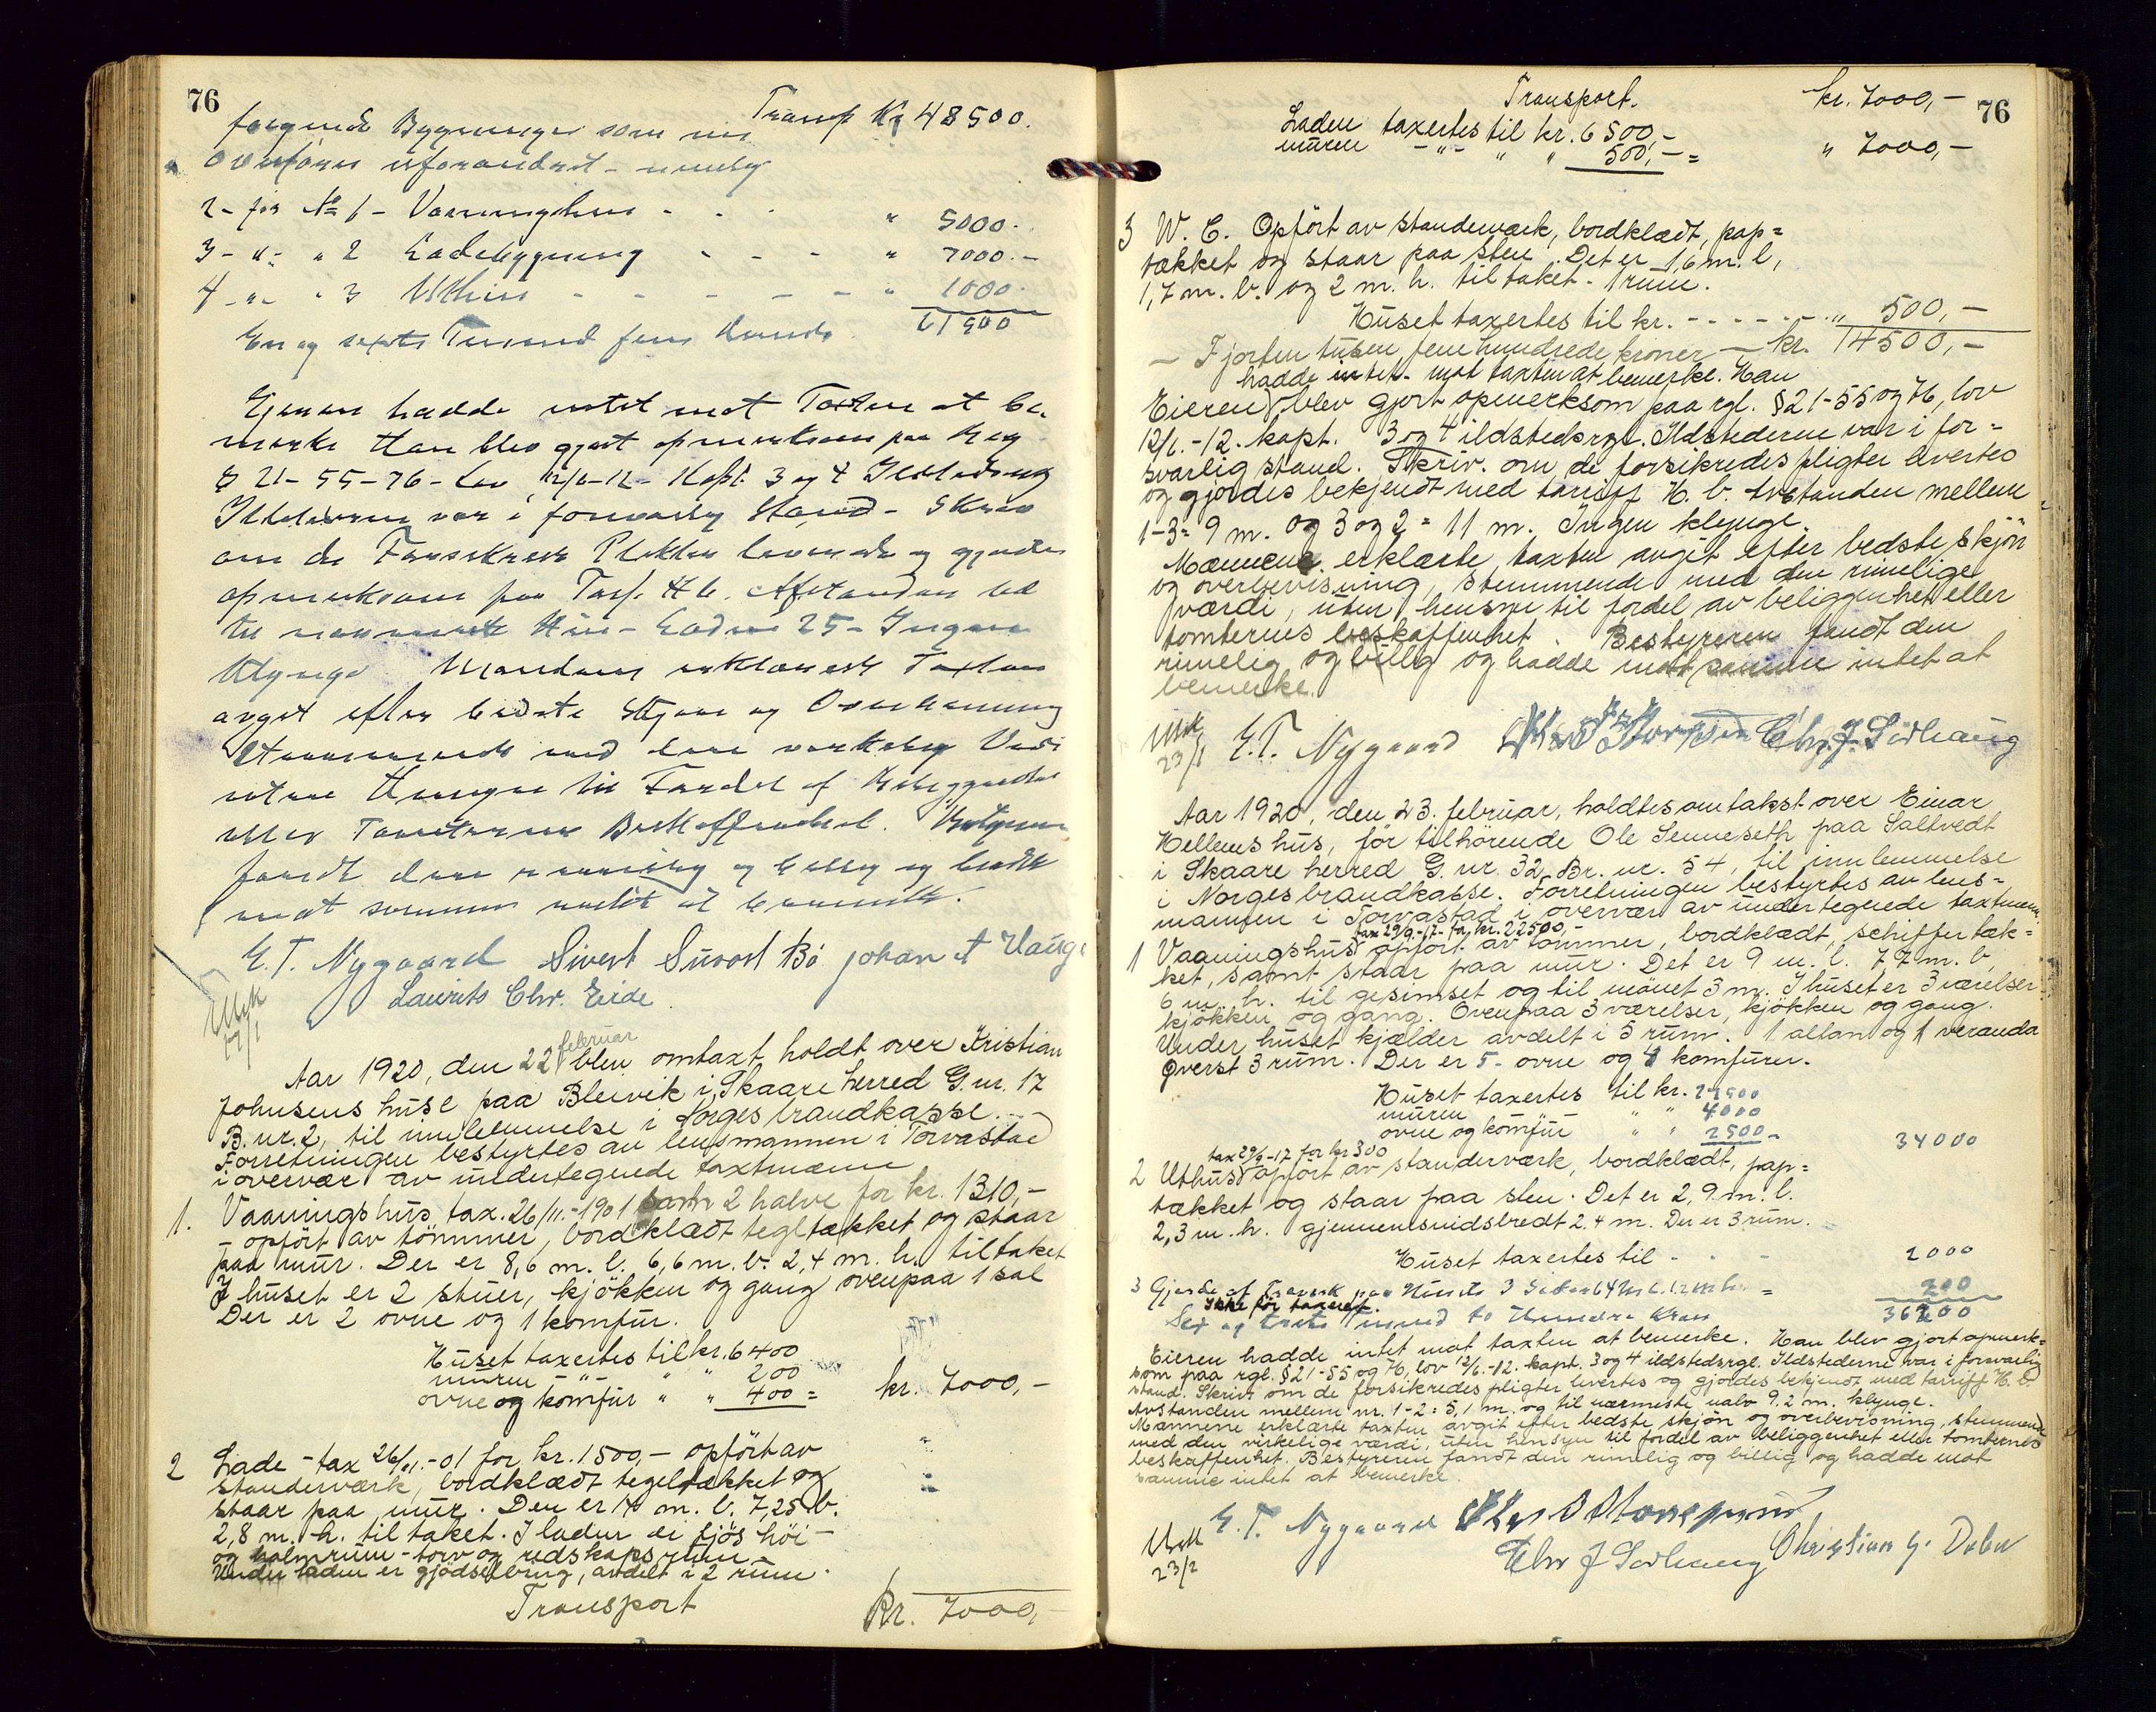 76
Transp Kr 48500.
følgende Bygninger som nu
overføres uforandret - nemlig
2 - før No 1 - Vaaningshus - - - " 5000.
3 - " - " 2 Ladebygning - - - " 7000.-
4 - " - " 3 Uthus - - - - - " 1000.
61500
En og sexti Tusend fem Hundr
Ejeren hadde intet mot Taxten at be-
merke Han blev gjort opmerksom paa Reg
§ 21-55-76- Lov 12/6-12- Kapt. 3 og 4 Ildstedsreg
Ildstederne var i forsvarlig Stand - Skriv
om de Forsikredes Plikter leverede og gjordes
opmerksom paa Tarf. H b. Afstanden
til nærmeste Hus - Laden 25 - Ingen
Klynge Mændene erklærede Taxten
avgit efter bedste Skjøn og Overbevisning
Stemmende med den virkelig Værdi
uten Hensyn til Fordel af Beliggenhed
eller Tomternes Beskaffenhed. Bestyreren
fandt den rimelig og billig og hadde
mot samme intet at bemerke.
E. T. Nygaard Sivert Sivert Bö Johan A Hauge
Laurits Chr. Eide
17/1
februar
Aar 1920, den 22 blev omtaxt holdt over Kristian
Johnsens huse paa Bleivik i Skaare herred G. nr. 17
B. nr. 2, til innlemmelse i Norges brandkasse.
Forretningen bestyrtes av lensmannen i Torvastad
i overvær av undertegnede taxtmænn
1. Vaaningshus, tax. 26/11.-1901 samt 2 halve for kr. 1310,-
opfört av tömmer, bordklædt tegltækket og staar
paa mur. Der er 8,6 m. l. 6,6 m. b. 2,4 m. h. til taket
I huset er 2 stuer, kjökken og gang ovenpaa 1 sal
Der er 2 ovne og 1 komfur.
Huset taxertes til kr. 6400
muren - " - " " 200
ovne og komfur " " 400 = kr. 7000,-
2 Lade - tax 26/11.-01 for kr. 1500,- opfört av
standerværk, bordklædt tegeltækket og
staar paa mur. Den er 14 m. l. 7,25 b.
2,8 m. h. til taket. I laden er fjös höi-
og halmrum - torv og redskapsrum
Under laden er gjödselbrug, avdelt i 2 rum.
Transport Kr. 7000,-
76
Transport. kr. 7000,-
Laden taxertes til kr. 6500,-
muren - " - " " 500,- = " 7000,-
3 W. C. Opfört av standerværk, bordklædt, pap=
tækket og staar paa sten. Det er 1,6 m. l,
1,7 m. b. og 2 m. h. til taket. 1 rum.
Huset taxertes til kr. - - - - - " 500,-
- Fjorten tusen, fem hundrede kroner - kr. 14500,-
hadde intet mot taxten at bemerke. Han
Eieren blev gjort opmerksom paa rgl. § 21-55 og 76, lov
12/6.-12. kapt. 3 og 4 ildstedsrgl. Ildstederne var i for=
svarlig stand. Skriv. om de forsikredes pligter levertes
og gjordes bekjendt med tariff H. b. Avstanden mellem
1-3= 9 m. og 3 og 2 = 11 m. Ingen klynge.
Mænnene erklærte taxten avgit efter bedste skjön
og overbevisning, stemmende med den rimelige
værdi, uten hensyn til fordel av beliggenhet eller
tomternes beskaffenhet. Bestyreren fandt den
rimelig og billig og hadde mot samme intet at
bemerke.
23/1 E. T. Nygaard Chr. J. Sörhaug
Aar 1920, den 23. februar, holdtes omtakst over Einar
Hellens hus, för tilhörende Ole Senneseth paa Saltvedt
i Skaare herred G. nr. 32 Br. nr. 54, til innlemmelse
i Norges brandkasse. Forretningen bestyrtes av lens=
mannen i Torvastad i overvær av undertegnede taxtmenn
tax 29/9.-17- for kr. 22500,-
1 Vaaningshus opfört av tömmer, bordklædt, schiffertæk=
ket, samt staar paa mur. Det er 9 m. l. 7,7 m. b,
6 m. h. til gesimset og til mönet 3 m. I huset er 3 værelser
kjökken og gang. Ovenpaa 3 værelser, kjökken og gang.
Under huset kjælder avdelt i 5 rum. 1 altan og 1 veranda
Øverst 3 rum. Der er 5 - ovne og 4 komfurer.
Huset taxertes til kr. 27500
muren " " 4000
ovne og komfur " " 2500 - 34000
tax 29/9-17 for kr 300
2 Uthus opfört av standerværk, bordklædt, pap=
tækket og staar paa sten. Det er 2,9 m. l.
2,3 m. h. gjennemsnidsbredt 2.4 m. Der er 3 rum.
Huset taxertes til - - - 2000
3 Gjerde af Træverk paa Husets 3 Sider 64 m l. 1.2 m h. = 200
Ikke för taxeret. 36200
Sex og tretti tusend to Hundre Kroner
Eieren hadde intet mot taxten at bemerke. Han blev gjort opmerk=
som paa rgl. § 21-55 og 76, lov 12/6.-12. kapt. 3 og 4 ildstedsrgl. Ildstederne var i forsvarlig
stand. Skriv om de forsikredes pligter levertes og gjordes bekjendt med tariff H. b
Avstanden mellem nr. 1-2= 5,1 m. og til nærmeste nabo 9.2 m. klynge.
Mænnene erklærte taxten avgit efter bedste skjön og overbevisning, stemmende
med den virkelige værdi, uten hensyn til fordel av beliggenhet eller tomternes
beskaffenhet. Bestyreren fandt den rimelig og billig og hadde mot
samme intet at bemerke.
E. T. Nygaard
23/2 Chr J Sörhaug Christian G. Dybu